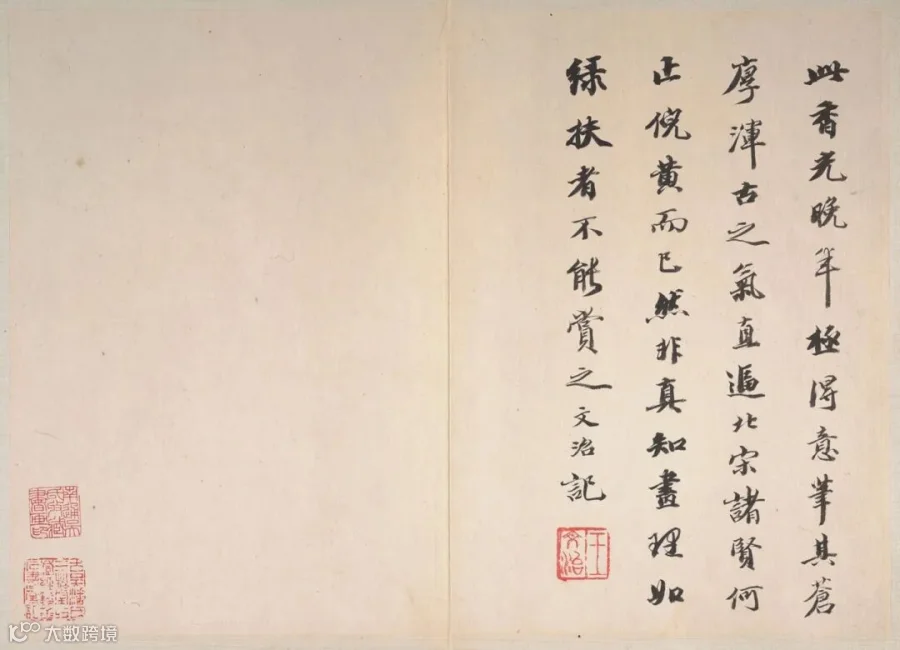 此香光晚年極得意筆其蒼
厚渾古之氣直逼北宋諸賢何
止倪黄而已然非真知畫理如
緑扶者不能賞之文治記
王文治
大数跨境